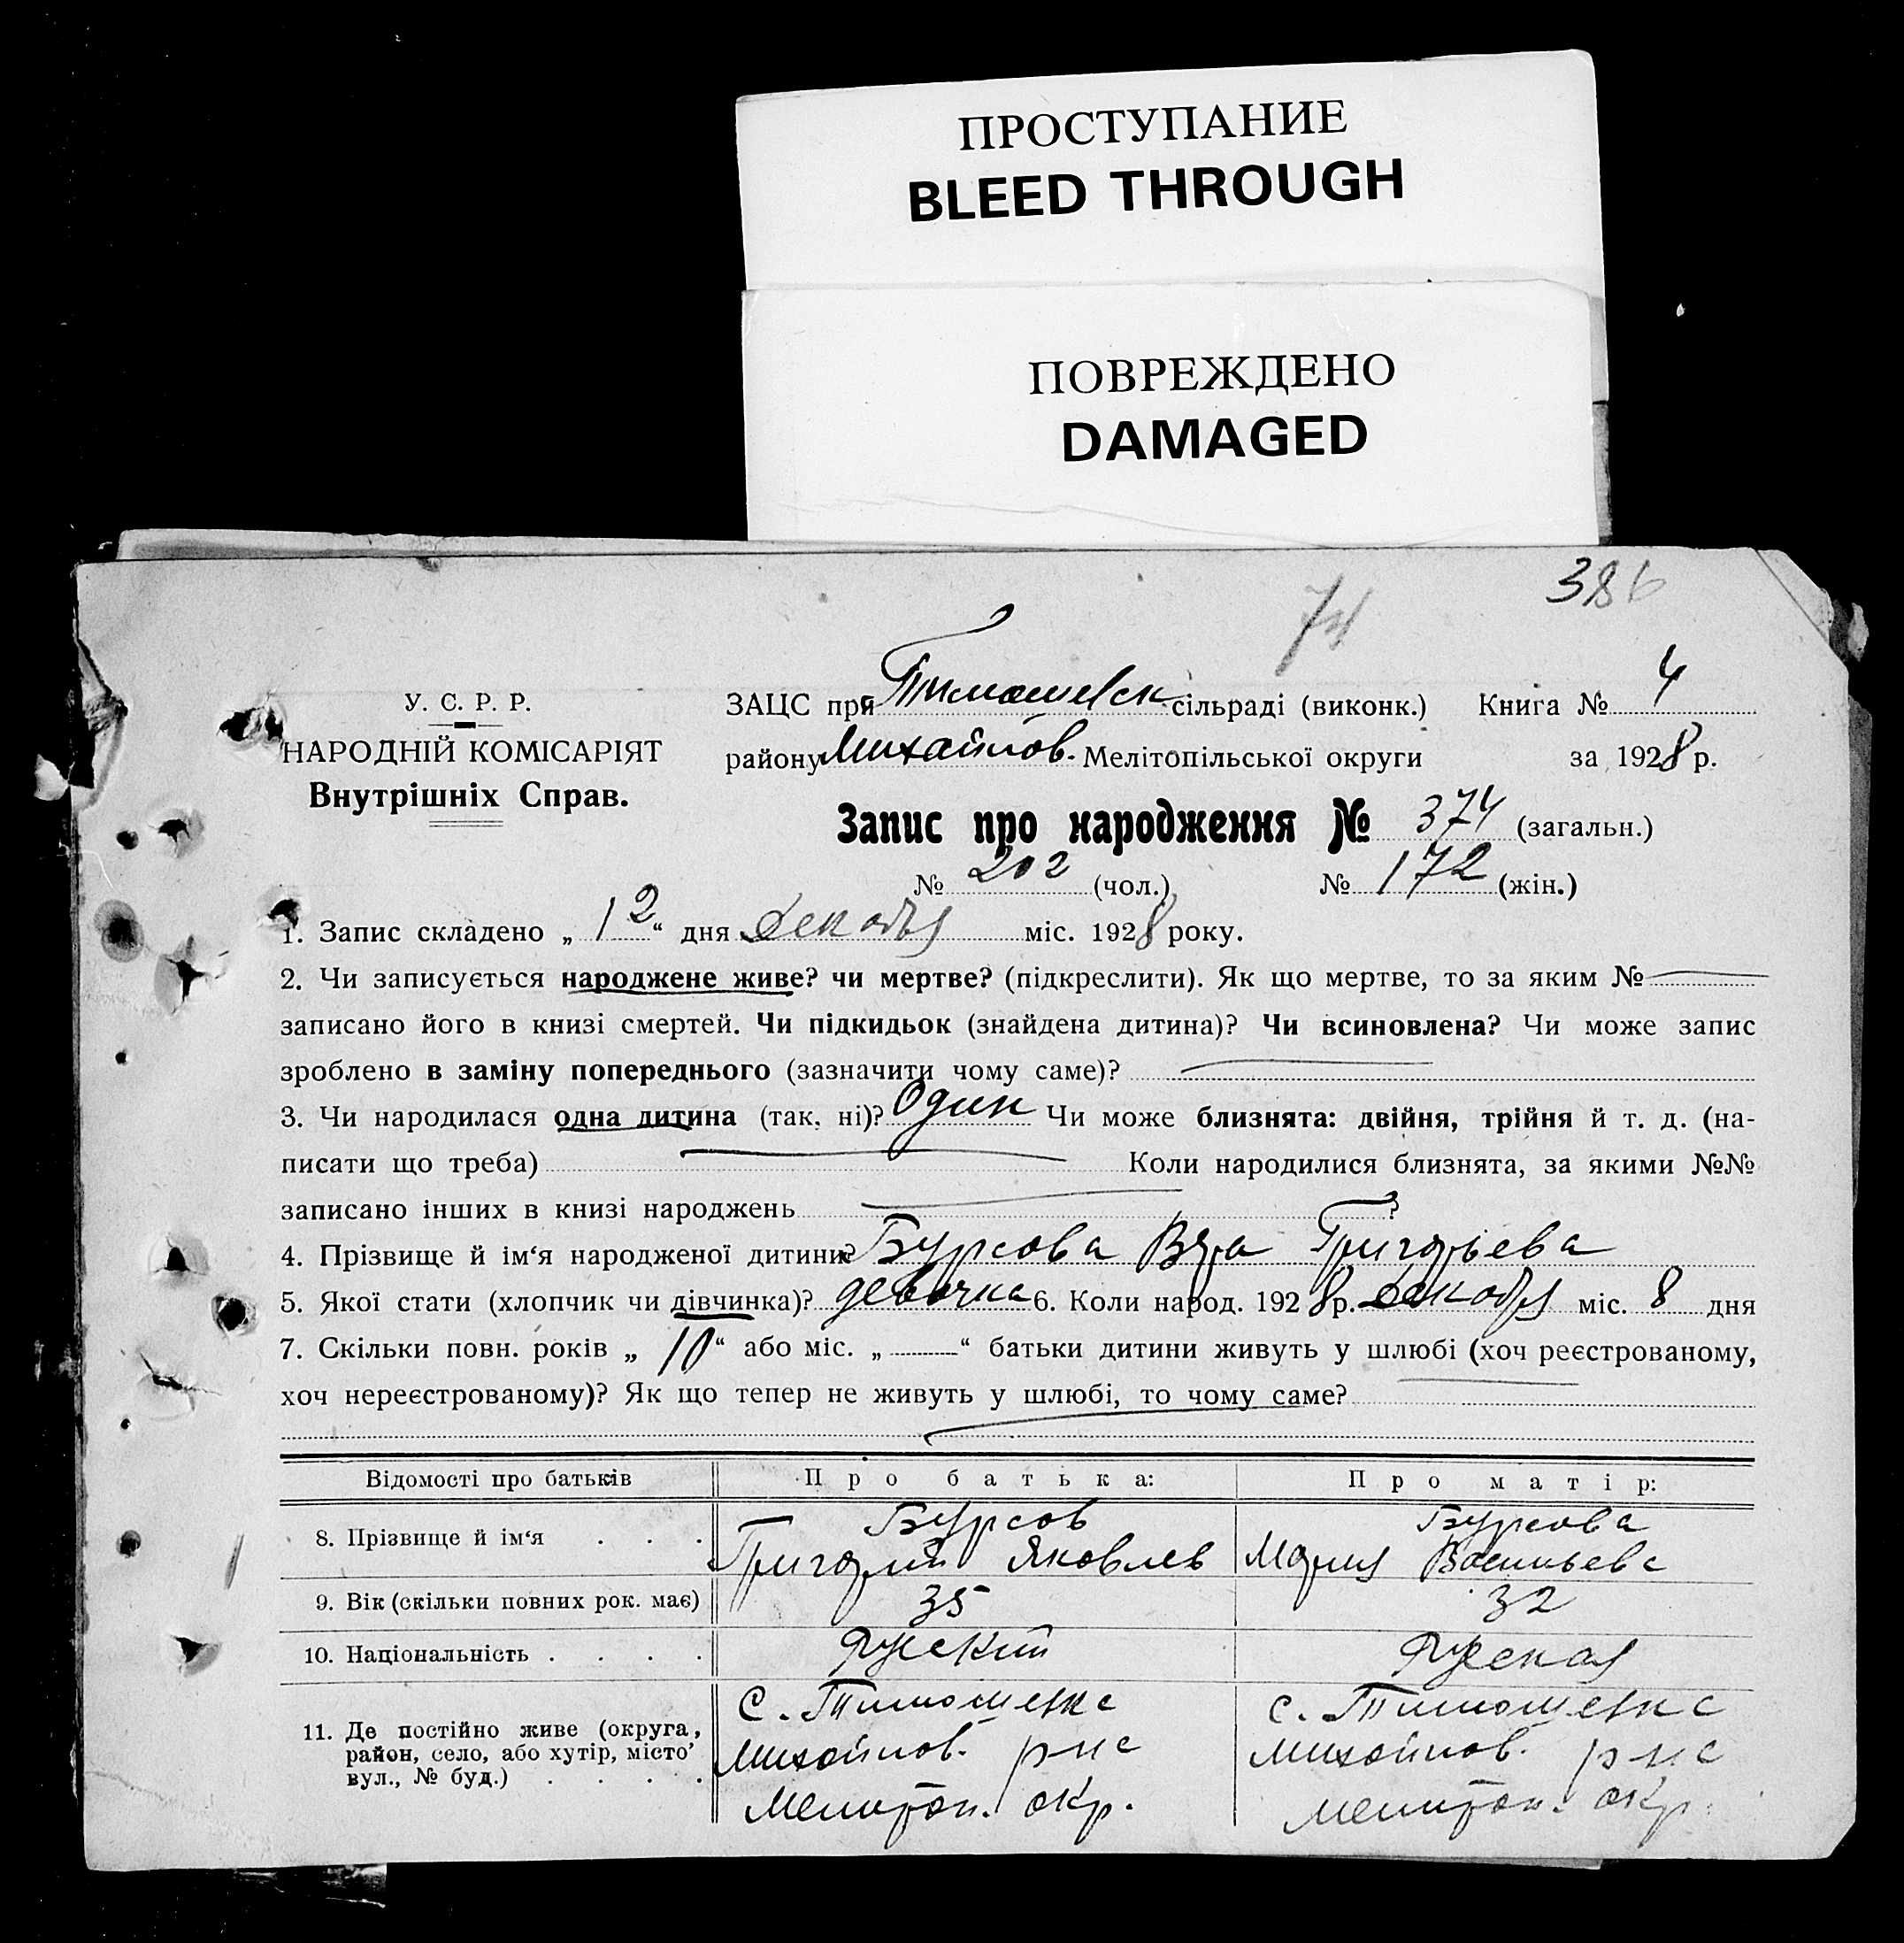 ПРОСТУПАНИЕ
BLEED THROUGH
ПОВРЕЖДЕНО
DAMAGED
386
74
У. С. Р. Р.
НАРОДНІЙ КОМІСАРІЯТ
Внутрішніх Справ.
ЗАЦС при Тимошевск сільраді (виконк.) Книга № 4
району Михайлов. Мелітопільської округи за 1928 р.
Запис про народження № 374 (загальн.)
№ 202 (чол.) № 172 (жін.)
1. Запис складено „ 12 “ дня декабря міс. 1928 року.
2. Чи записується народжене живе? чи мертве? (підкреслити). Як що мертве, то за яким №
записано його в книзі смертей. Чи підкидьок (знайдена дитина)? Чи всиновлена? Чи може запис
зроблено в заміну попереднього (зазначити чому саме)?
3. Чи народилася одна дитина (так, ні)? Один Чи може близнята: двійня, трійня й т. д. (на-
писати що треба) Коли народилися близнята, за якими №№
записано інших в книзі народжень ?
4. Прізвище й ім‘я народженої дитини? Бурсова Вера Григорьева
5. Якої стати (хлопчик чи дівчинка)? девочка 6. Коли народ. 1928 р. декабря міс. 8 дня
7. Скільки повн. років „ 10 “ або міс. „ “ батьки дитини живуть у шлюбі (хоч реєстрованому,
хоч нереєстрованому)? Як що тепер не живуть у шлюбі, то чому саме?
Відомості про батьків Про батька: Про матір:
8. Прізвище й ім‘я . . . Бурсов Бурсова
Григорий Яковлев Мария Васильева
9. Вік (скільки повних рок. має) 35 32
10. Національність . . . . Руский Руская
11. Де постійно живе (округа, район, село, або хутір, місто’ вул., № буд.) . . . .
с. Тимошевка с. Тимошевка
Михайлов. р-на Михайлов. р-на
Мелитоп. окр. Мелитоп. окр.